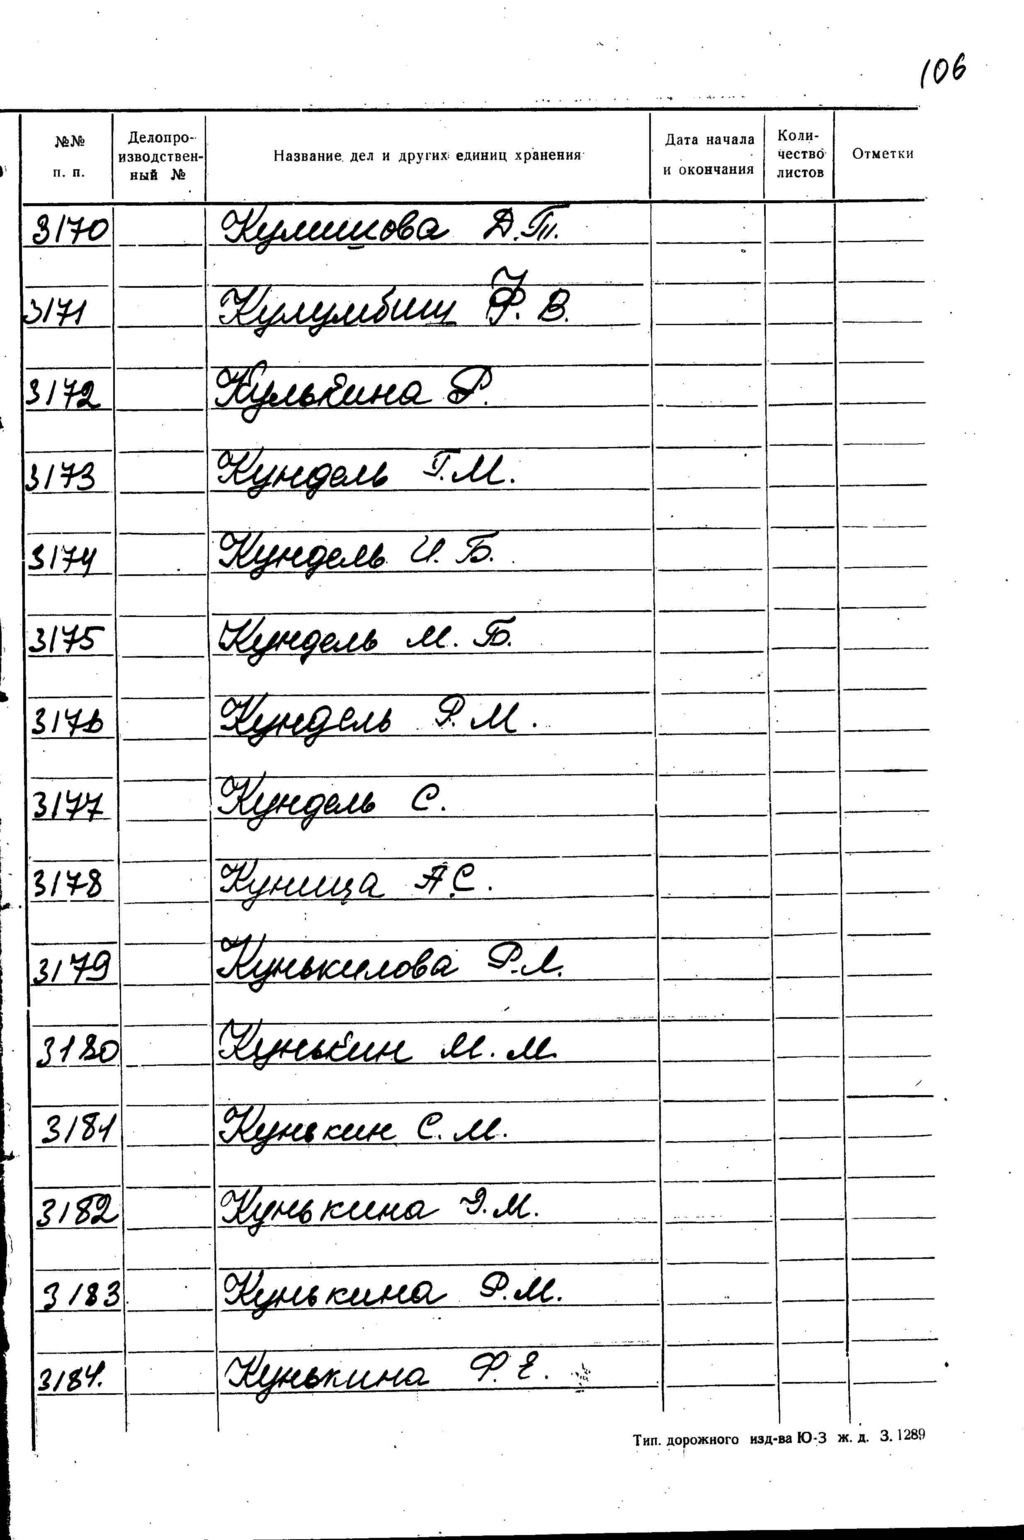 106
№№ п. п. Делопро- изводствен- ный № Название дел и других единиц хранения Дата начала и окончания Коли- чество листов Отметки
3170 Кулишова
3171 Кулумбиц Ф. В.
3172 Кулькина Р.
3173 Кундель Г. М.
3174 Кундель И. Б.
3175 Кундель М. Б.
3176 Кундель Р. М.
3177 Кундель С.
3178 Куница А С.
3179 Кунькилова Р. Л.
3180 Кунькин М. М.
3181 Кунькин С. М.
3182 Кунькина Э. М.
3183 Кунькина Р. М.
3184. Кунькина Ф. Е.
Тип. дорожного изд-ва Ю-З ж. д. З. 1289